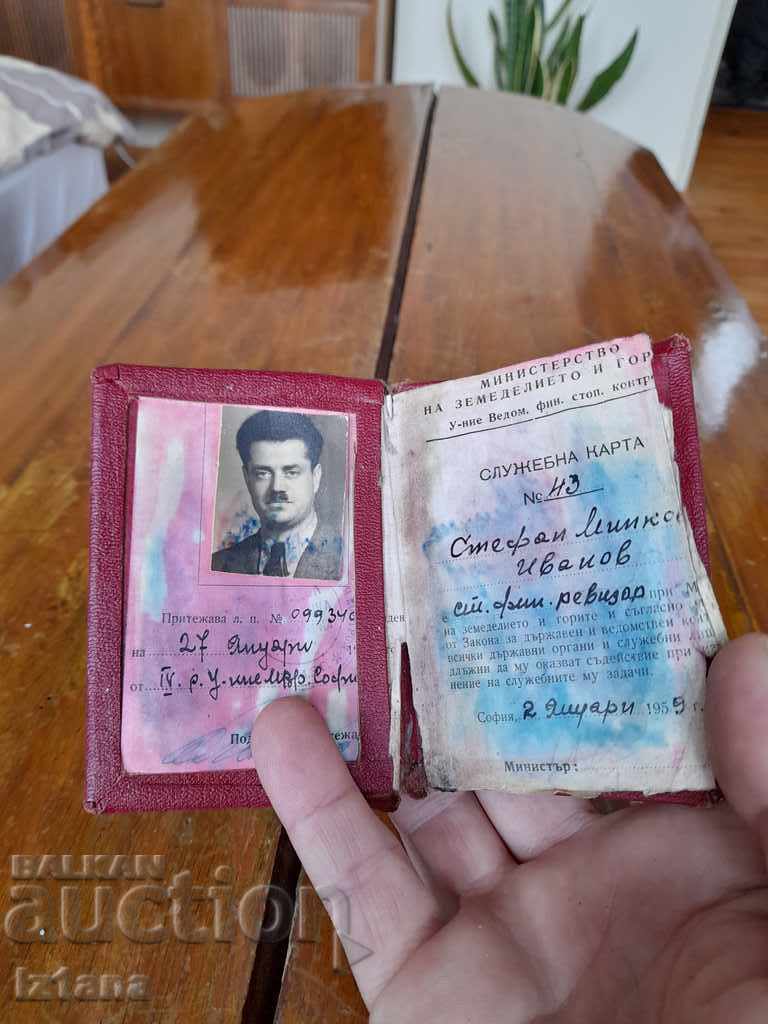 Притежава л. п. № 099340
на 27 Януари
от IV. р. у-ние М.в.р. Софи
МИНИСТЕРСТВО
НА ЗЕМЕДЕЛИЕТО И ГОР
У-ние Ведом. фин. стоп. контр
СЛУЖЕБНА КАРТА
№ 43
Стефан Минков
Иванов
е ст. фин. ревизор при М
на земеделието и горите и съгласно
от Закона за държавен и ведомствен кон
всички държавни органи и служебни лиц
длъжни да му оказват съдействие при
нение на служебните му задачи.
София, 2 Януари 1959 г.
Министър:
BALKAN
auction
Iz1ana